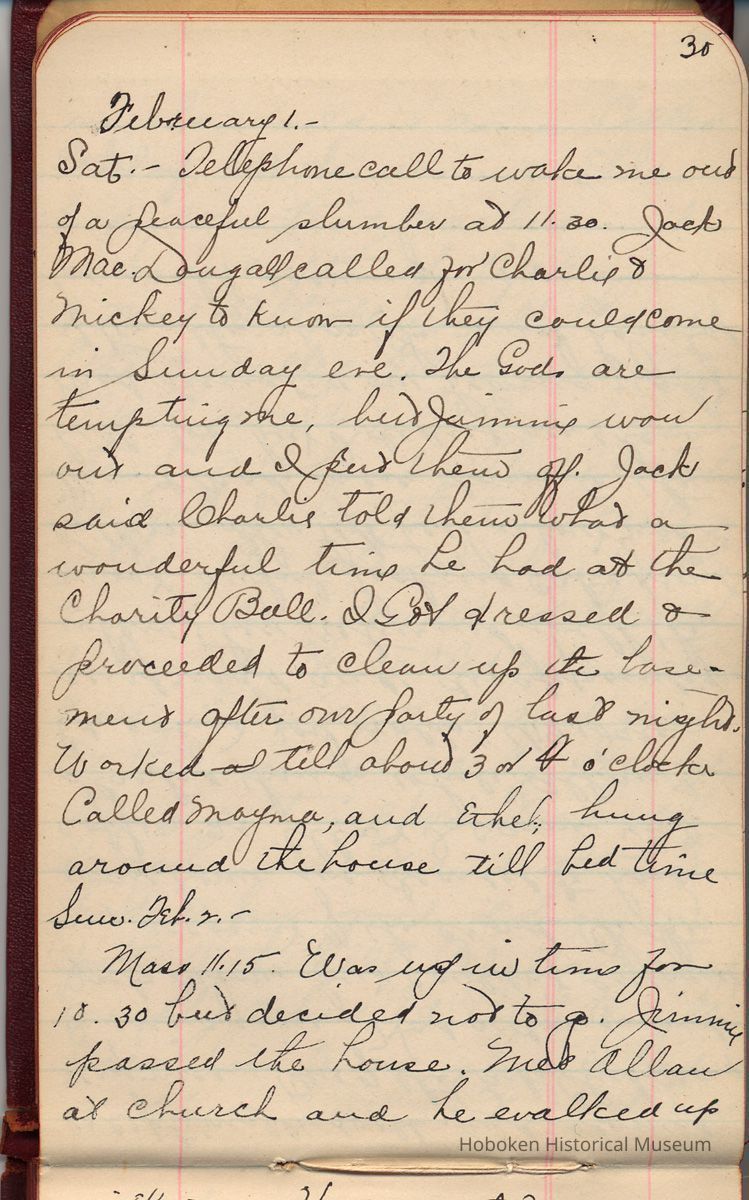 30
February 1.-
Sat.- Telephone call to wake me out
of a peaceful slumber at 11.30. Jack
Mac.Dougall called for Charlie &
Mickey to know if they could come
in Sunday eve. The Gods are
tempting me, but Jimmie won
out and I put them off. Jack
said Charlie told them what a
wonderful time he had at the
Charity Ball. I Got dressed &
proceeded to clean up the base-
ment after our party of last night.
Worked till about 3 or 4 o'clock
Called Mayma, and Ethel, hung
around the house till bed time
Sun. Feb. 2.-
Mass 11.15. Was up in time for
10.30 but decided not to go. Jimmie
passed the house. Met Allan
at church and he walked up
Hoboken Historical Museum